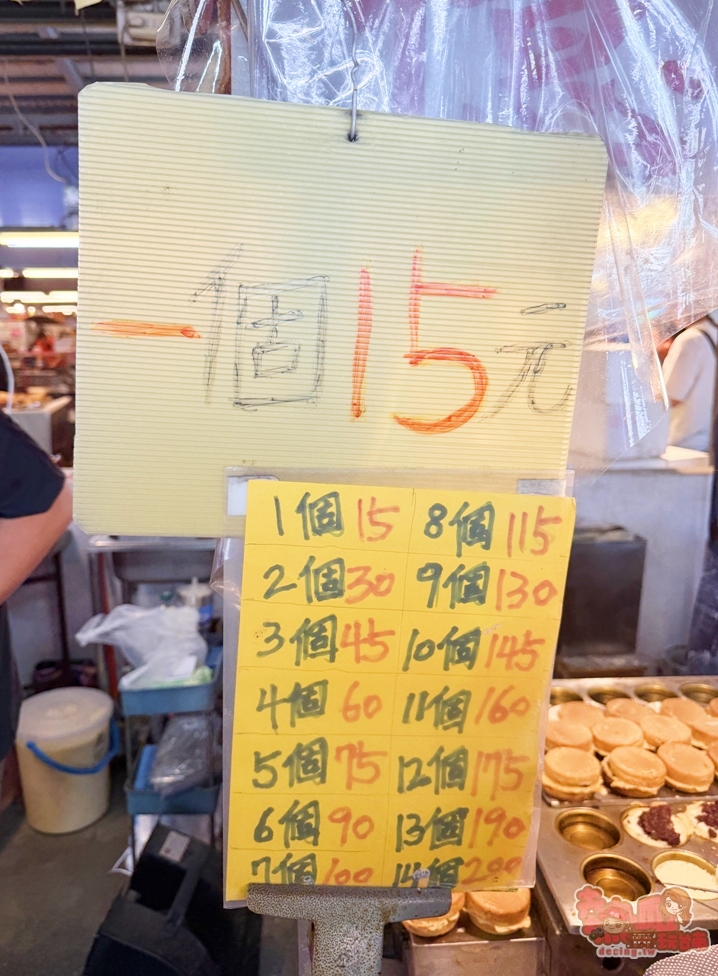 一個15元
1個 15
2個 30
3個 45
4個 60
5個 75
6個 90
7個 100
8個 115
9個 130
10個 145
11個 160
12個 175
13個 190
14個 200
decing.tw